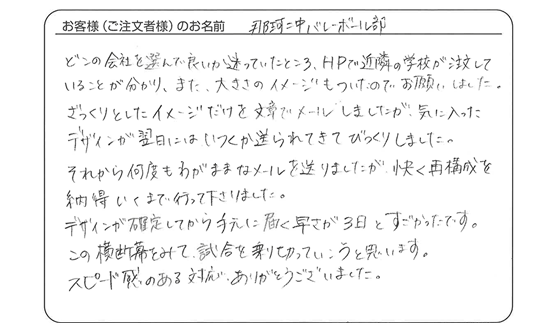 お客様(ご注文者様)のお名前 那珂二中バレーボール部
どこの会社を選んで良いか迷っていたところ、HPで近隣の学校が注文して
いることが分かり、また、大きさのイメージもついたのでお願いしました。
ざっくりとしたイメージだけを文章でメールしましたが、気に入った
デザインが翌日にはいくつか送られてきてびっくりしました。
それから何度もわがままなメールを送りましたが、快く再構成を
納得いくまで行って下さりました。
デザインが確定してから手元に届く早さが3日とすごかったです。
この横断幕をみて、試合を乗り切っていこうと思います。
スピード感のある対応、ありがとうございました。